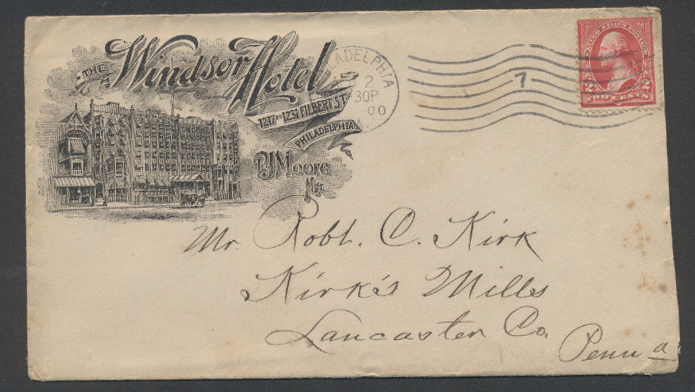 THE Windsor Hotel
1217 TO 1231 FILBERT ST.
PHILADELPHIA
P.J. Moore
Mgr
ADELPHIA
2
30P
00
7
UNITED STATES POSTAGE
2 2
TWO CENTS
Mr. Robt. C. Kirk
Kirk's Mills
Lancaster Co.
Penna